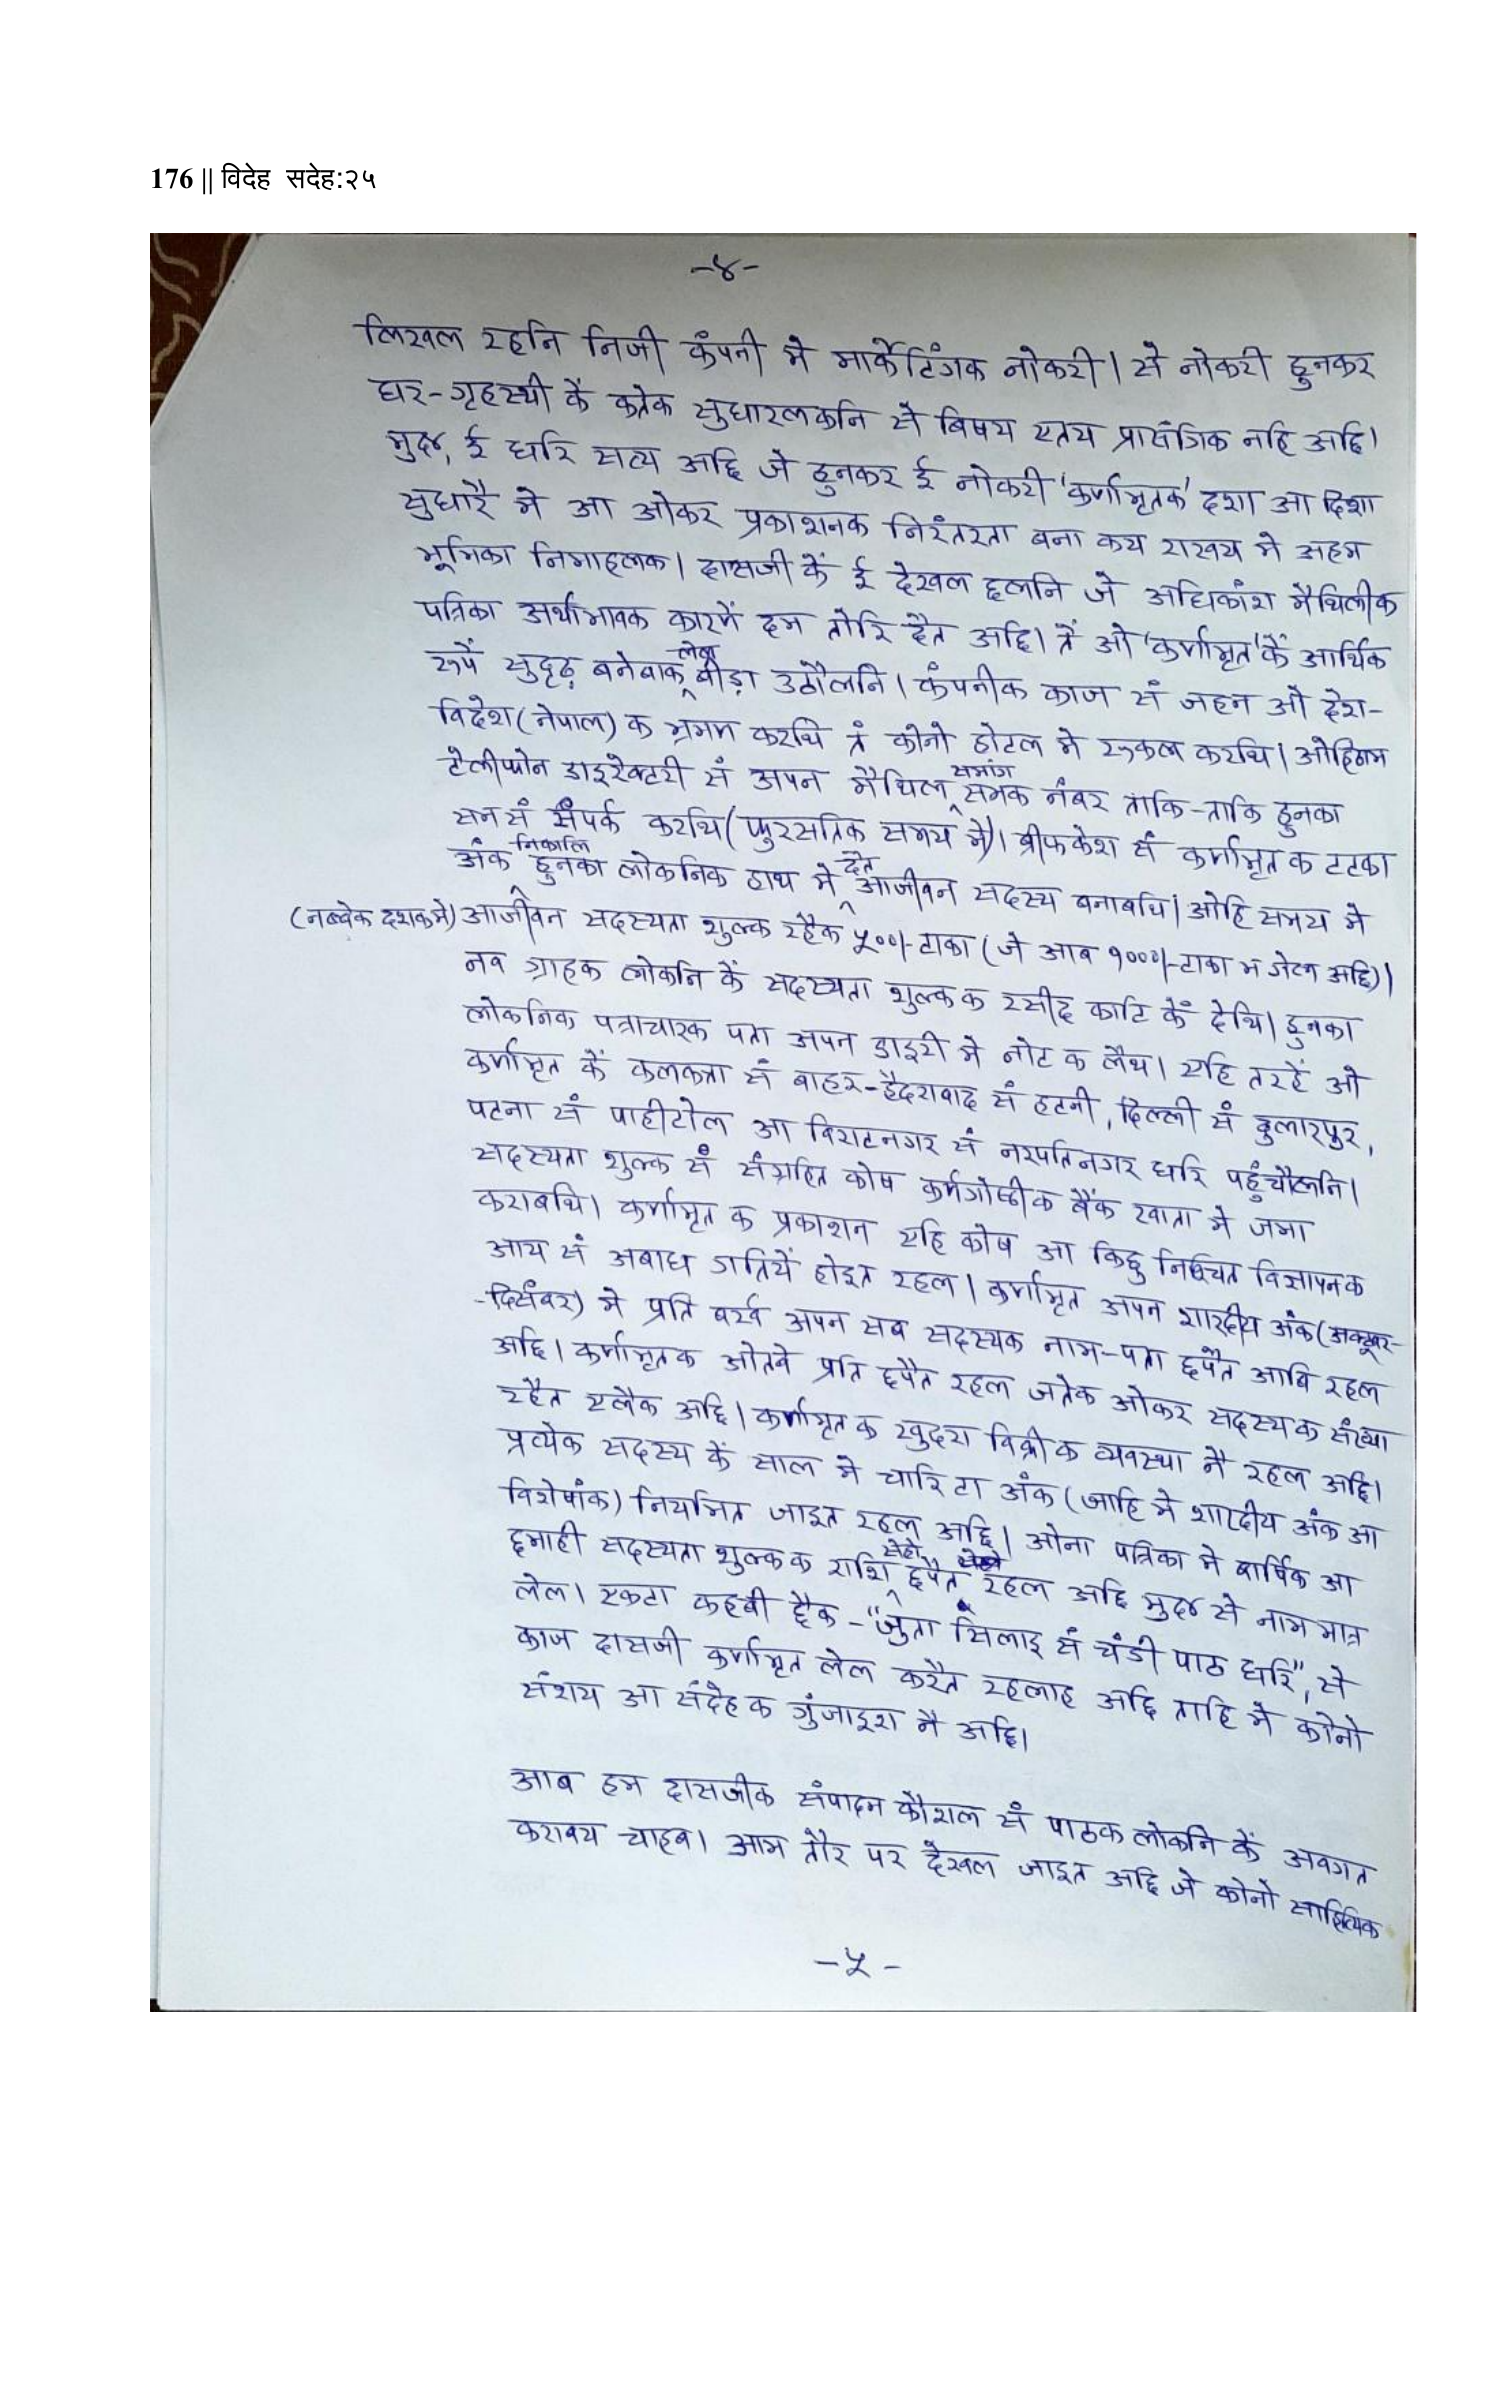 176 || विदेह सदेह:२५
-४-
लिखल रहनि निजी कंपनी मे मार्केटिंगक नोकरी। से नोकरी हुनकर
घर-गृहस्थी कें कतेक सुधारलकनि से बिषय एतय प्रासंगिक नहि अछि।
मुदा, ई धरि सत्य अछि जे हुनकर ई नोकरी 'कर्णामृतक' दशा आ दिशा
सुधारै मे आ ओकर प्रकाशनक निरंतरता बना कय राखय मे अहम
भूमिका निमाहलक। दासजी कें ई देखल छलनि जे अधिकांश मैथिलीक
पत्रिका अर्थाभावक कारणें दम तोरि दैत अछि। तें ओ 'कर्णामृत' कें आर्थिक
रूपें सुदृढ़ बनेबाक लेल बीड़ा उठौलनि। कंपनीक काज सं जहन ओ देश-
विदेश (नेपाल) क भ्रमण करथि तं कोनो होटल मे रुकल करथि। ओहिठाम
टेलीफोन डाइरेक्टरी सं अपन मैथिल समांग सभक नंबर ताकि-ताकि हुनका
सन सं संपर्क करथि (फुरसतिक समय मे)। ब्रीफकेश सं कर्णामृत क टटका
अंक निकालि हुनका लोकनिक हाथ मे दैत आजीवन सदस्य बनाबथि। ओहि समय मे
(नब्बेक दशक मे) आजीवन सदस्यता शुल्क रहैक ५००/- टाका (जे आब १०००/- टाका भ गेल अछि)।
नव ग्राहक लोकनि कें सदस्यता शुल्क क रसीद काटि कें देथि। हुनका
लोकनिक पत्राचारक पता अपन डाइरी मे नोट क लैथ। एहि तरहें ओ
कर्णामृत कें कलकत्ता सं बाहर-हैदराबाद सं हटनी, दिल्ली सं दुलारपुर,
पटना सं पाहीटोल आ बिराटनगर सं नरपतिनगर धरि पहुंचौलनि।
सदस्यता शुल्क सं संग्रहित कोष कर्णगोष्ठीक बैंक खाता मे जमा
कराबथि। कर्णामृत क प्रकाशन एहि कोष आ किछु निश्चित विज्ञापनक
आय सं अबाध गतियें होइत रहल। कर्णामृत अपन शारदीय अंक (अक्टूबर-
-दिसंबर) मे प्रति बरख अपन सब सदस्यक नाम-पता छपैत आबि रहल
अछि। कर्णामृतक ओतबे प्रति छपैत रहल जतेक ओकर सदस्यक संख्या
रहैत एलैक अछि। कर्णामृत क खुदरा बिक्री क व्यवस्था नै रहल अछि।
प्रत्येक सदस्य कें साल मे चारि टा अंक (जाहि मे शारदीय अंक आ
विशेषांक) नियमित जाइत रहल अछि। ओना पत्रिका मे वार्षिक आ
छमाही सदस्यता शुल्क क राशि सेहो छपैत रहल अछि मुदा से नाम मात्र
लेल। एकटा कहबी छैक - "जुता सिलाइ सं चंडी पाठ धरि", से
काज दासजी कर्णामृत लेल करैत रहलाह अछि ताहि मे कोनो
संशय आ संदेह क गुंजाइश नै अछि।
आब हम दासजीक संपादन कौशल सं पाठक लोकनि कें अवगत
करावय चाहब। आम तौर पर देखल जाइत अछि जे कोनो साहित्यिक
-५-